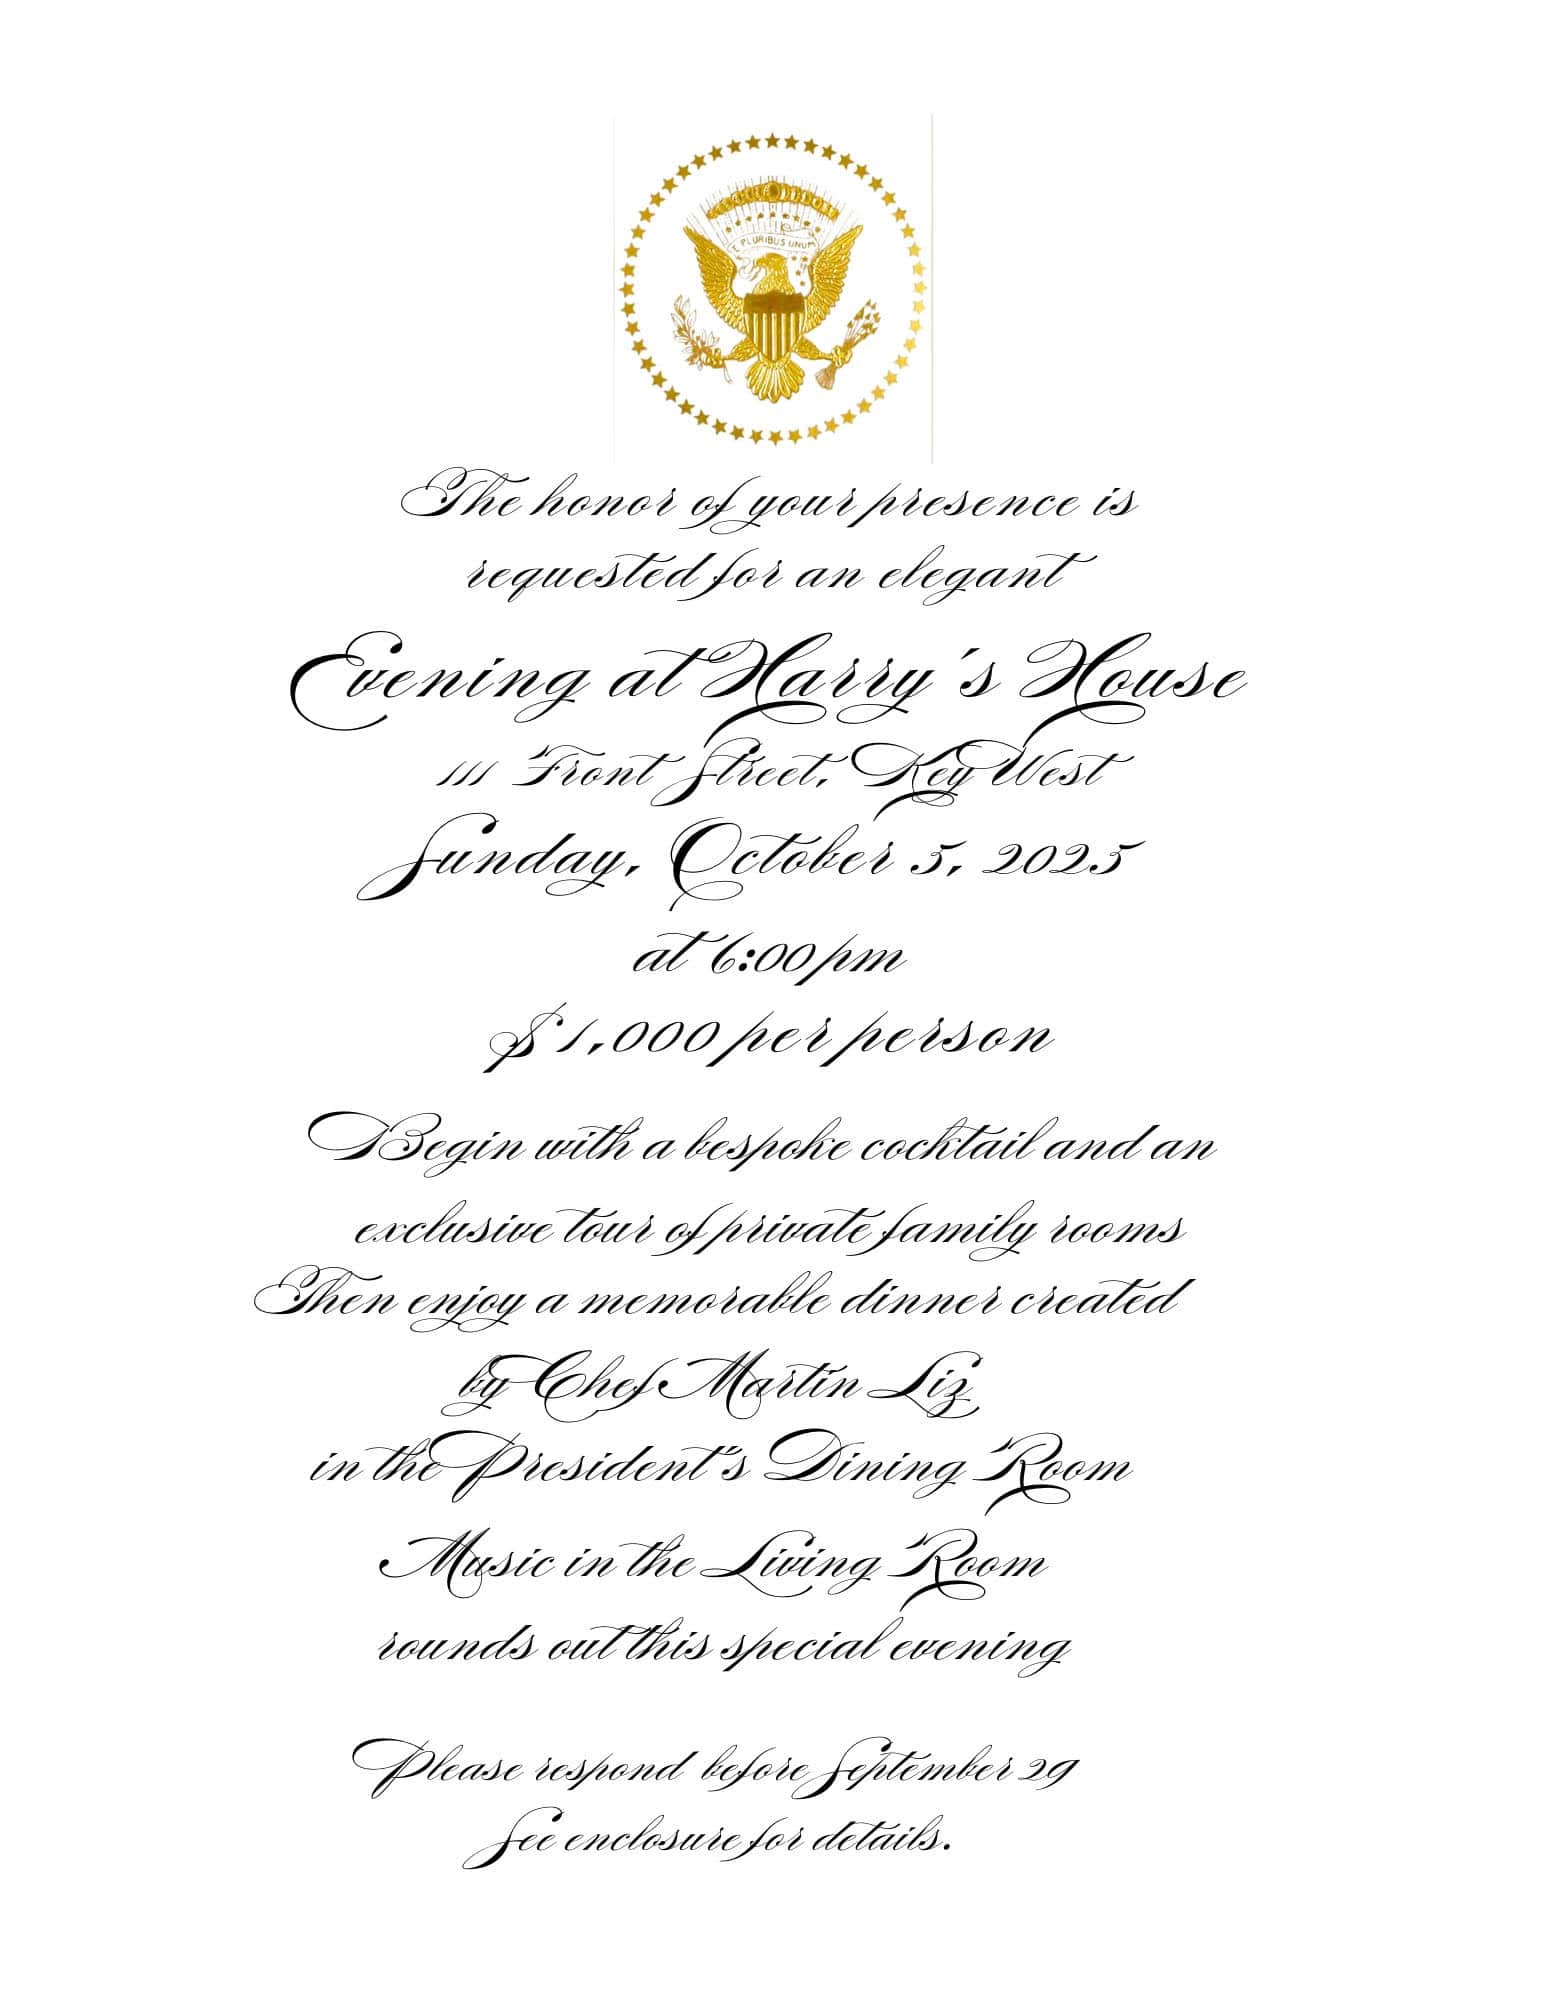 E PLURIBUS UNUM
The honor of your presence is
requested for an elegant
Evening at Harry's House
111 Front Street, Key West
Sunday, October 5, 2025
at 6:00 pm
$1,000 per person
Begin with a bespoke cocktail and an
exclusive tour of private family rooms
Then enjoy a memorable dinner created
by Chef Martin Liz
in the President's Dining Room
Music in the Living Room
rounds out this special evening
Please respond before September 29
See enclosure for details.